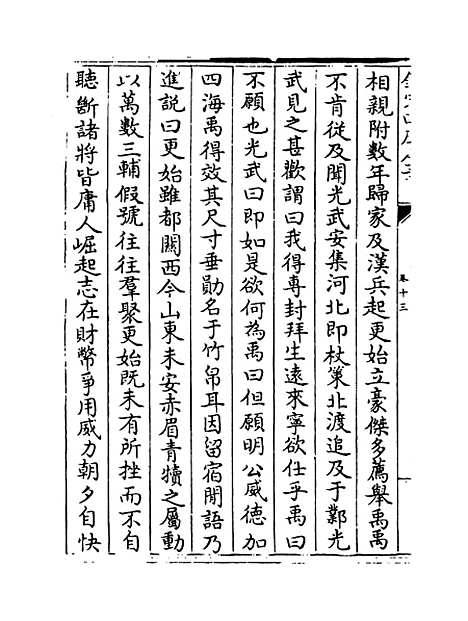 欽定四庫全書
卷十三
相親附數年歸家及漢兵起更始立豪傑多薦舉禹禹
不肯從及聞光武安集河北即杖策北渡追及于鄴光
武見之甚歡謂曰我得專封拜生遠來寧欲仕乎禹曰
不願也光武曰即如是欲何為禹曰但願明公威德加
四海禹得效其尺寸垂勛名于竹帛耳因留宿閒語乃
進說曰更始雖都關西今山東未安赤眉青犢之屬動
以萬數三輔假號往往羣聚更始既未有所挫而不自
聽斷諸將皆庸人崛起志在財幣爭用威力朝夕自快